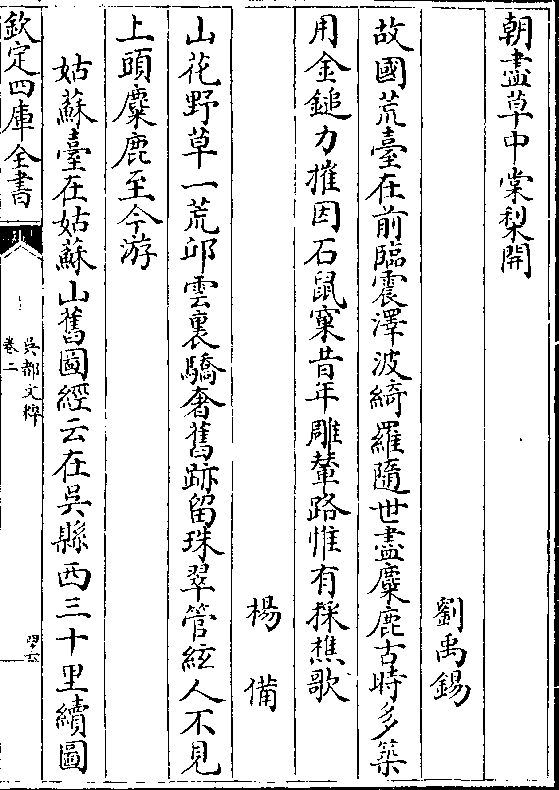 朝盡草中棠梨開
劉禹錫
故國荒臺在前臨震澤波綺羅隨世盡麋鹿古時多築
用金鎚力摧因石鼠窠昔年雕輦路惟有採樵歌
楊備
山花野草一荒邱雲裏驕奢舊跡留珠翠管絃人不見
上頭麋鹿至今游
姑蘇臺在姑蘇山舊圖經云在吳縣西三十里續圖
欽定四庫全書
吳都文粹
卷二